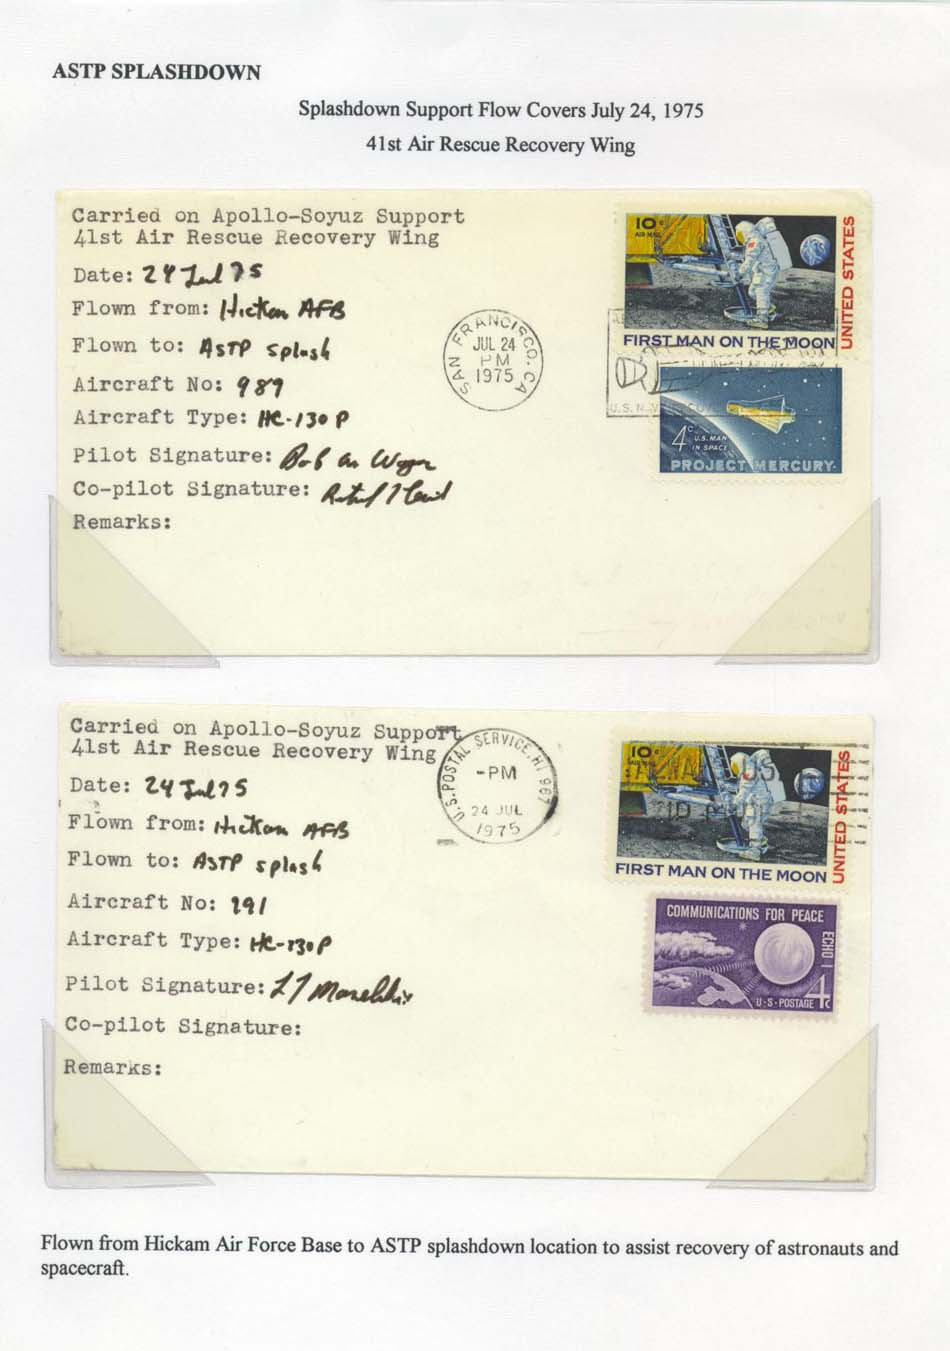 ASTP SPLASHDOWN
Splashdown Support Flow Covers July 24, 1975
41st Air Rescue Recovery Wing
Carried on Apollo-Soyuz Support
41st Air Rescue Recovery Wing
Date: 24 Jul 75
Flown from: Hickam AFB
Flown to: ASTP splash
Aircraft No: 989
Aircraft Type: HC-130P
Pilot Signature:
Co-pilot Signature:
Remarks:
SAN FRANCISCO, CA
JUL 24
PM
1975
10c
AIR MAIL
UNITED STATES
FIRST MAN ON THE MOON
4c U.S. MAN
IN SPACE
PROJECT MERCURY
Carried on Apollo-Soyuz Support
41st Air Rescue Recovery Wing
Date: 24 Jul 75
Flown from: Hickam AFB
Flown to: ASTP splash
Aircraft No: 291
Aircraft Type: HC-130P
Pilot Signature:
Co-pilot Signature:
Remarks:
U.S. POSTAL SERVICE, HI 967
-PM
24 JUL
1975
10c
UNITED STATES
FIRST MAN ON THE MOON
COMMUNICATIONS FOR PEACE
ECHO I
U·S·POSTAGE 4c
Flown from Hickam Air Force Base to ASTP splashdown location to assist recovery of astronauts and
spacecraft.